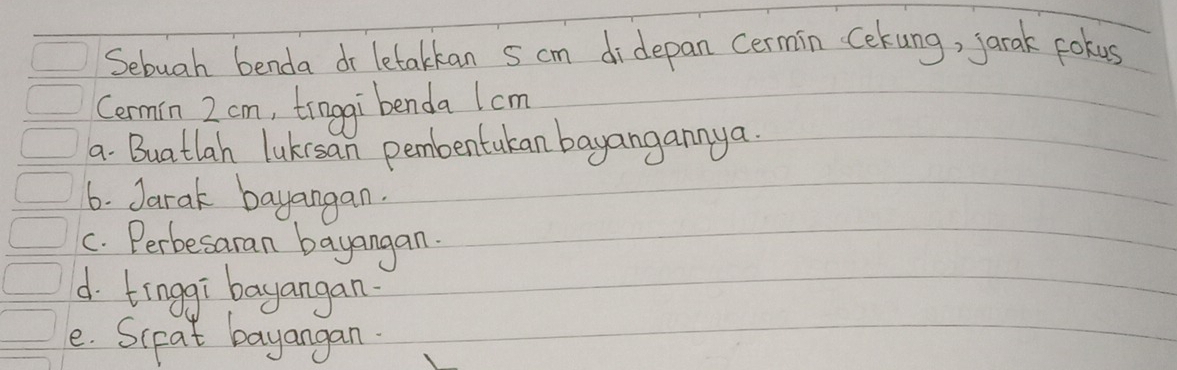 Sebuah benda di letakkan 5 cm di depan cermin cekung, jarak fokus
cermin 2 cm, tinggi benda 1 cm
a. Buatlah lukisan pembentukan bayangannya.
b. Jarak bayangan.
c. Perbesaran bayangan.
d. tinggi bayangan.
e. Sifat bayangan.